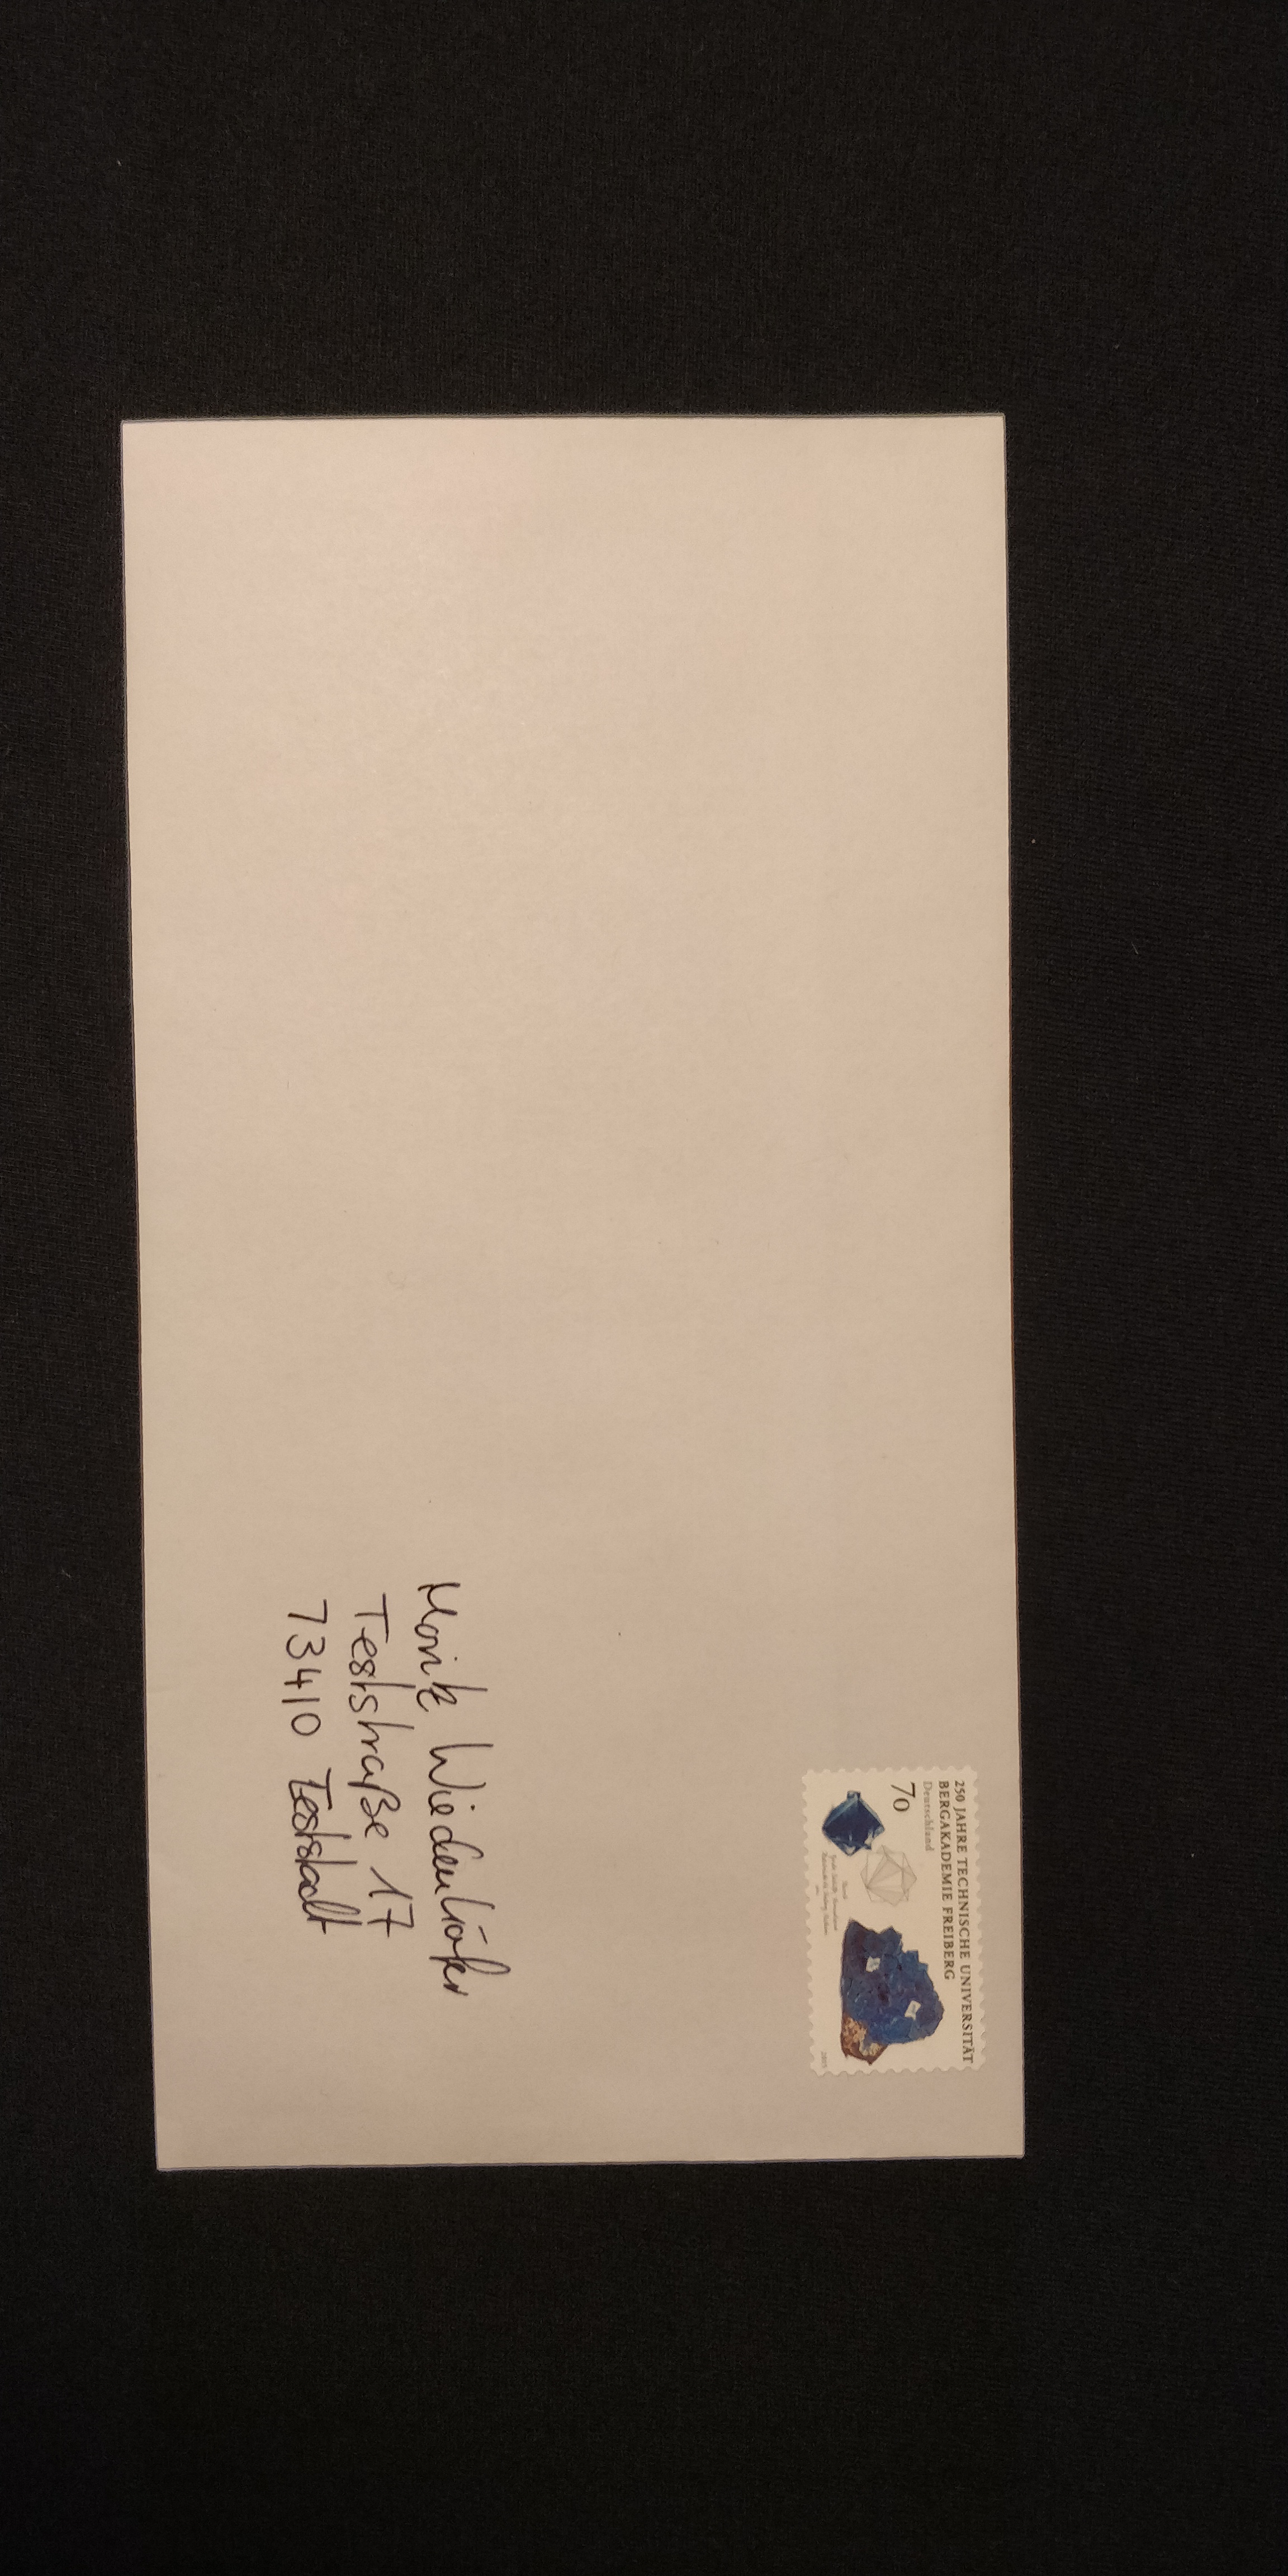 250 JAHRE TECHNISCHE UNIVERSITÄT
BERGAKADEMIE FREIBERG
Deutschland
70
2015
Moritz
Teststraße 17
73410 Teststadt